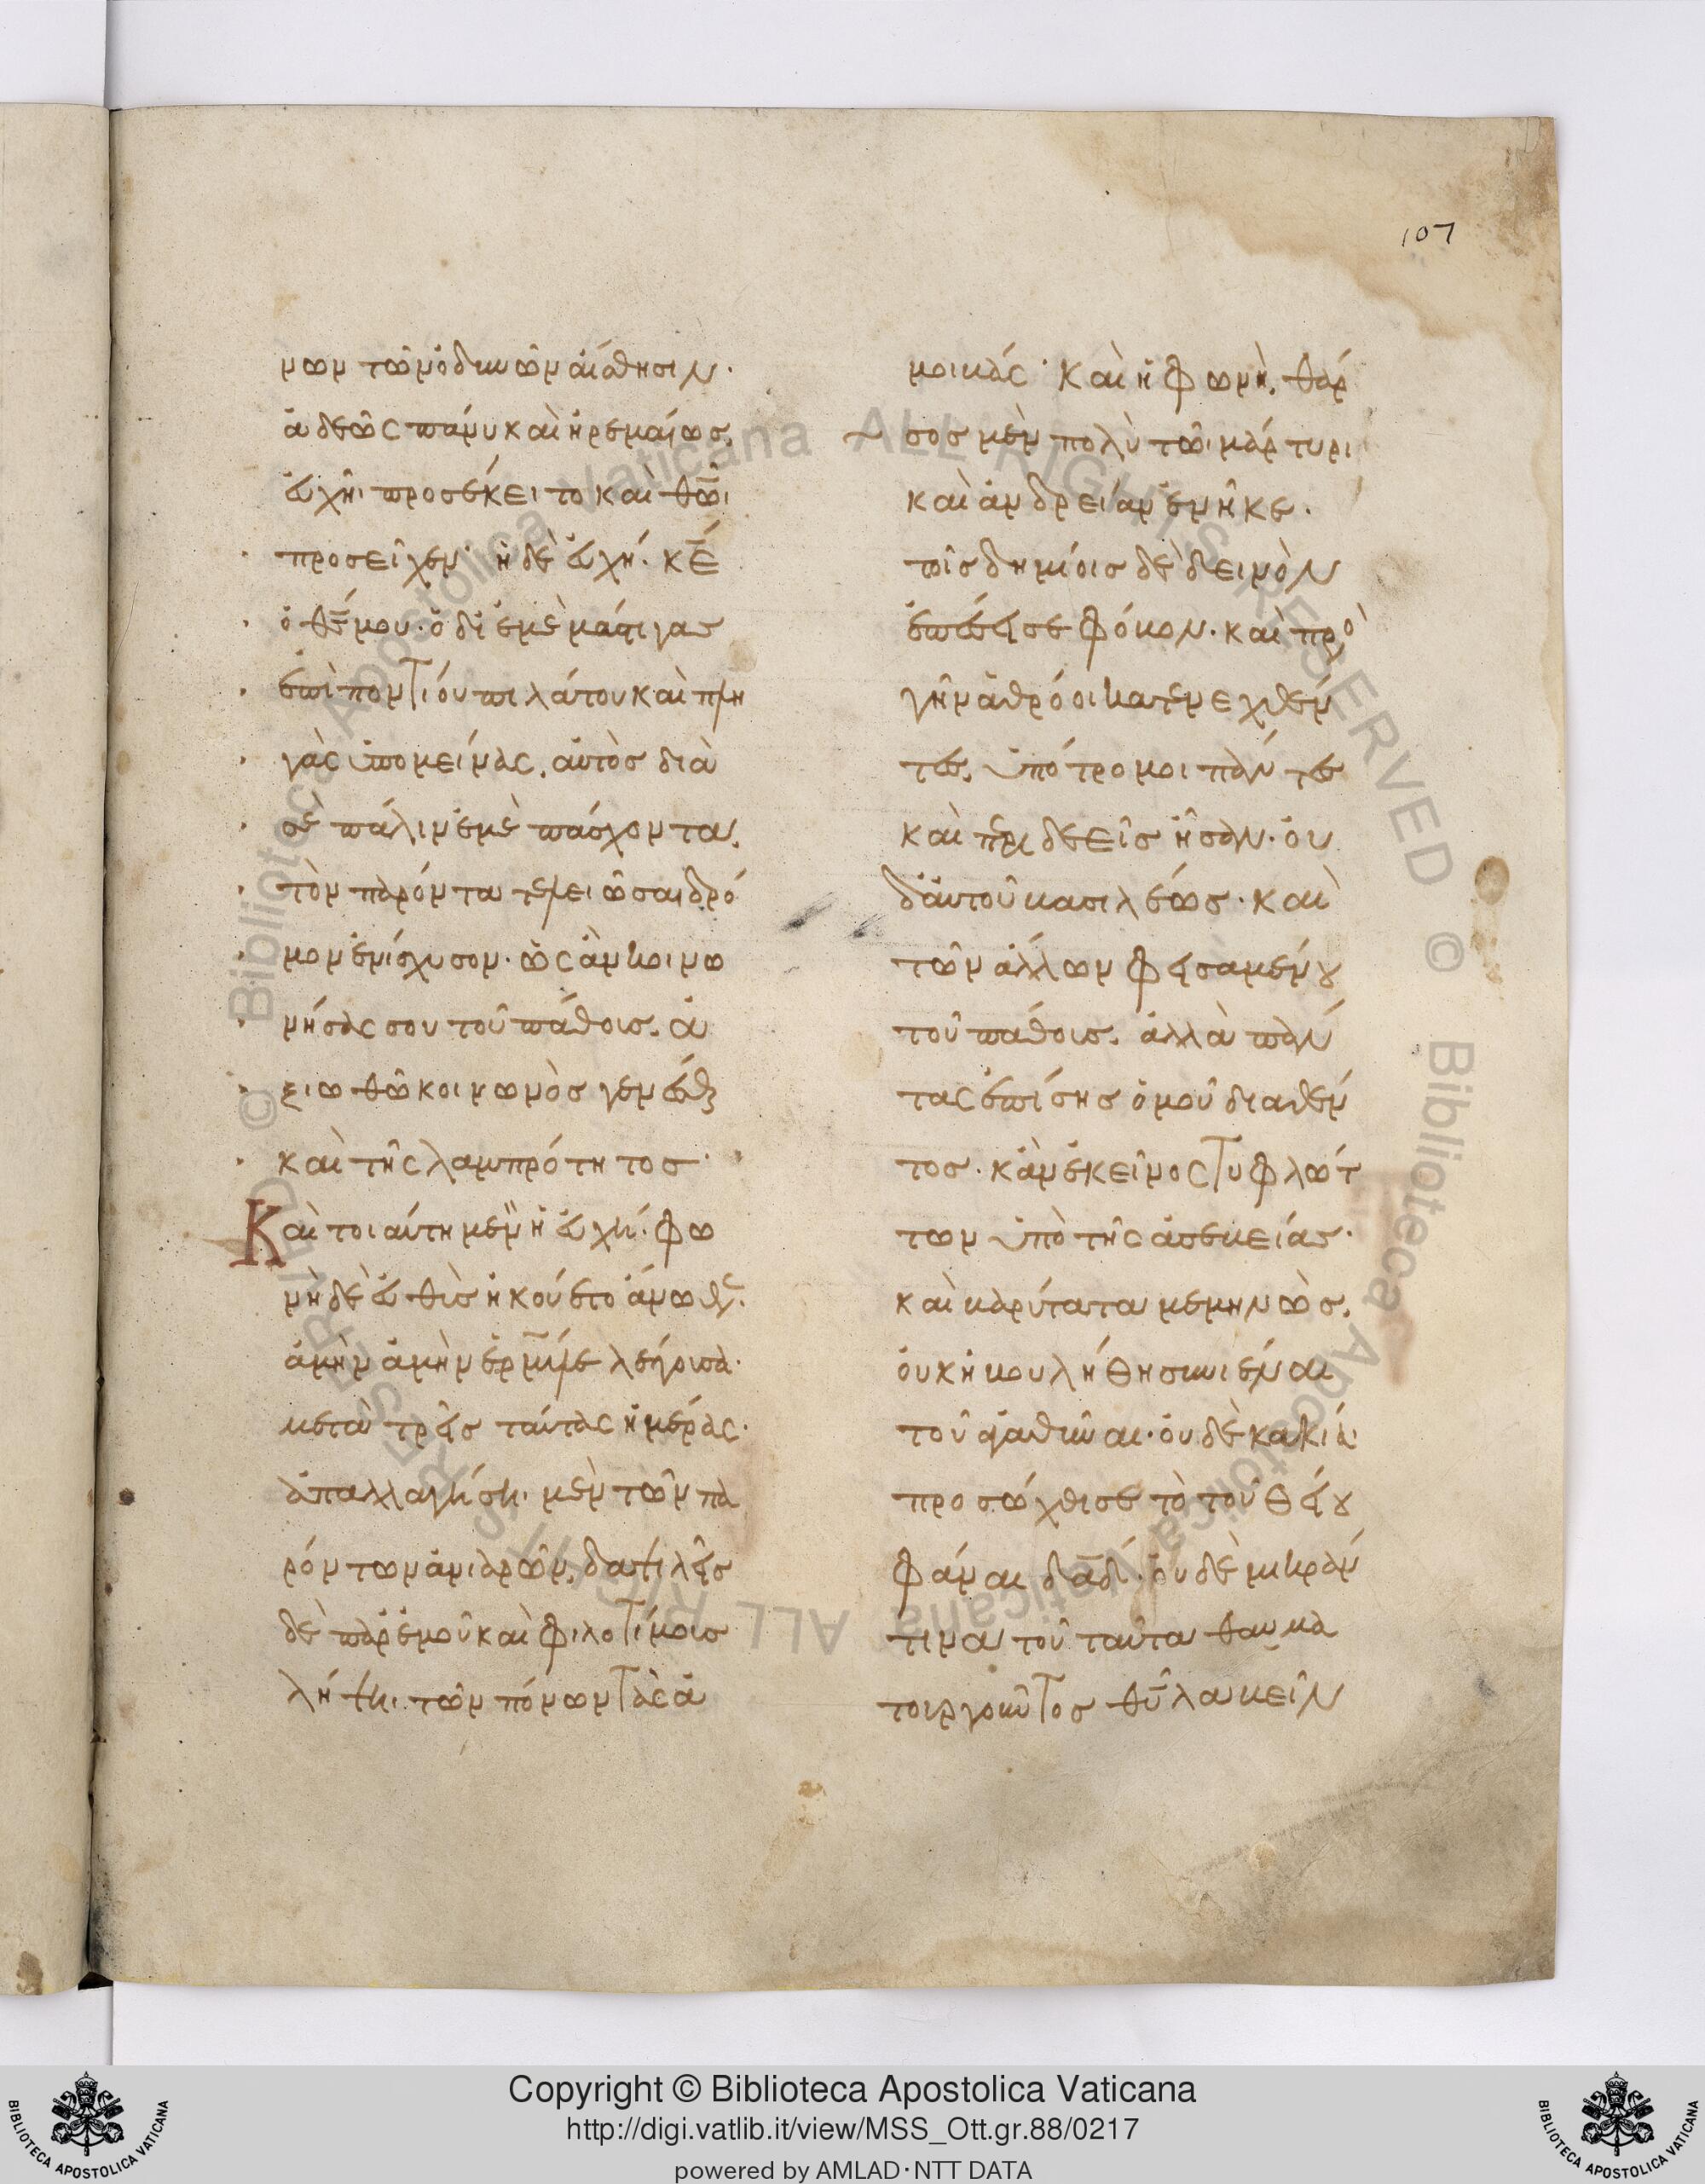 107
μων τῶν ὀδυνῶν αἴσθησιν·
ἀδεῶς πάνυ καὶ ἠρεμαίως,
εὐχῆι προσέκειτο καὶ θ̅ω̅ι
προσεῖχεν· ἡ δὲ εὐχή· κ̅ε̅
ὁ θ̅ς̅ μου· ὁ δι' ἐμὲ μάστιγας
ἐπὶ ποντίου πιλάτου καὶ πλη
γὰς ὑπομείνας, αὐτὸς διὰ
σὲ πάλιν ἐμὲ πάσχοντα,
τὸν παρόντα τελειῶσαι δρό
μον ἐνίσχυσον· ὡς ἂν κοινω
νήσας σου τοῦ πάθους, ἀ
ξιωθῶ κοινωνὸς γενέσθαι
καὶ τῆς λαμπρότητος·
Καὶ τοιαύτη μὲν ἡ εὐχή· φω
νὴ δὲ εὐθὺς ἠκούετο ἄνωθεν·
ἀμὴν ἀμὴν
μετὰ τρεῖς ταύτας ἡμέρας·
ἀπαλλαγήσηι μὲν τῶν πα
ρόντων ἀνιαρῶν, δαψιλεῖς
δὲ παρ' ἐμοῦ καὶ φιλοτίμους
λήψηι τῶν πόνων τὰς ἀ
μοιβάς· Καὶ ἡ φωνὴ, θάρ
σος μὲν πολὺ τῶι μάρτυρι
καὶ ἀνδρείαν ἐνῆκε·
τοῖς δημίοις δὲ δεινὸν
ἐπέσεισε φόβον· καὶ πρὸ
γῆν ἀθρόοι κατενεχθέν
τες, ὑπότρομοι πάντες
καὶ περιδεεῖς ἦσαν· οὐ
δ' αὐτοῦ βασιλέως· καὶ
τῶν ἄλλων φεισαμένου
τοῦ πάθους, ἀλλὰ πάν
τας ἐπίσης ὁμοῦ διαθέν
τος· κἂν ἐκεῖνος τυφλώτ
των ὑπὸ τῆς ἀσεβείας·
καὶ βαρύτατα μεμηνὼς,
οὐκ ἠβουλήθη συνιέναι
τοῦ ἀγαθῦναι· οὐδὲ κακία
προσώχθισε τὸ τοῦ θείου
φάναι δ̅α̅δ̅· οὐδὲ μικράν
τινα τοῦ ταῦτα θαυμα
τουργοῦντος θ̅υ̅ λαβεῖν
Copyright © Biblioteca Apostolica Vaticana
http://digi.vatlib.it/view/MSS_Ott.gr.88/0217
powered by AMLAD·NTT DATA